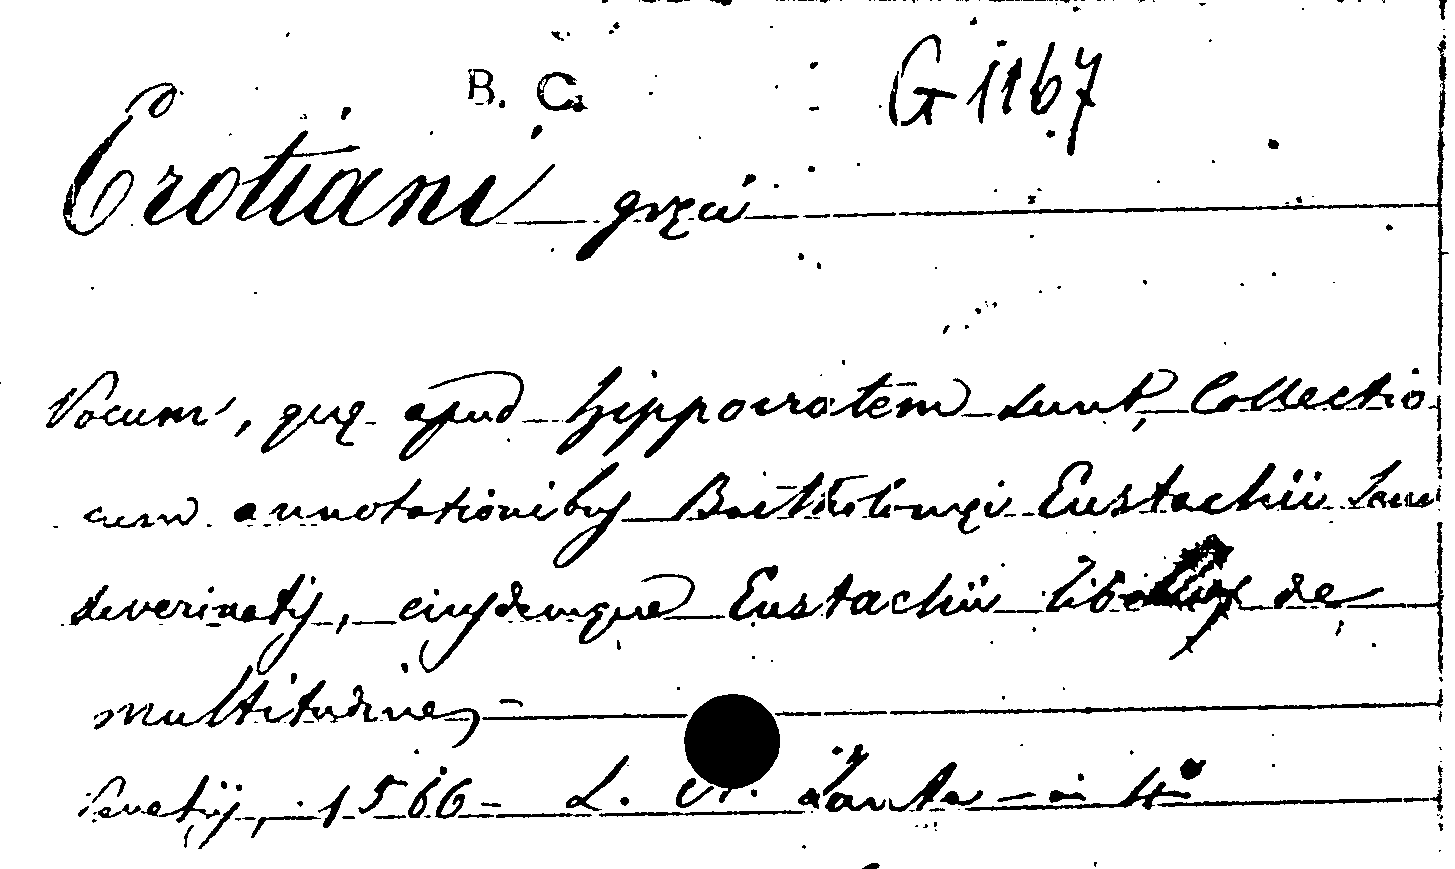 B. C. G 1167
Erotiani gręci
Vocum, quę apud Hippocratem sunt, Collectio
cum annotationibus Bartholomęi Eustachii San
severinatis, eiusdemque Eustachii libellus de
multitudine,-
Venetijs, 1566- L. A. Junta - in 4º